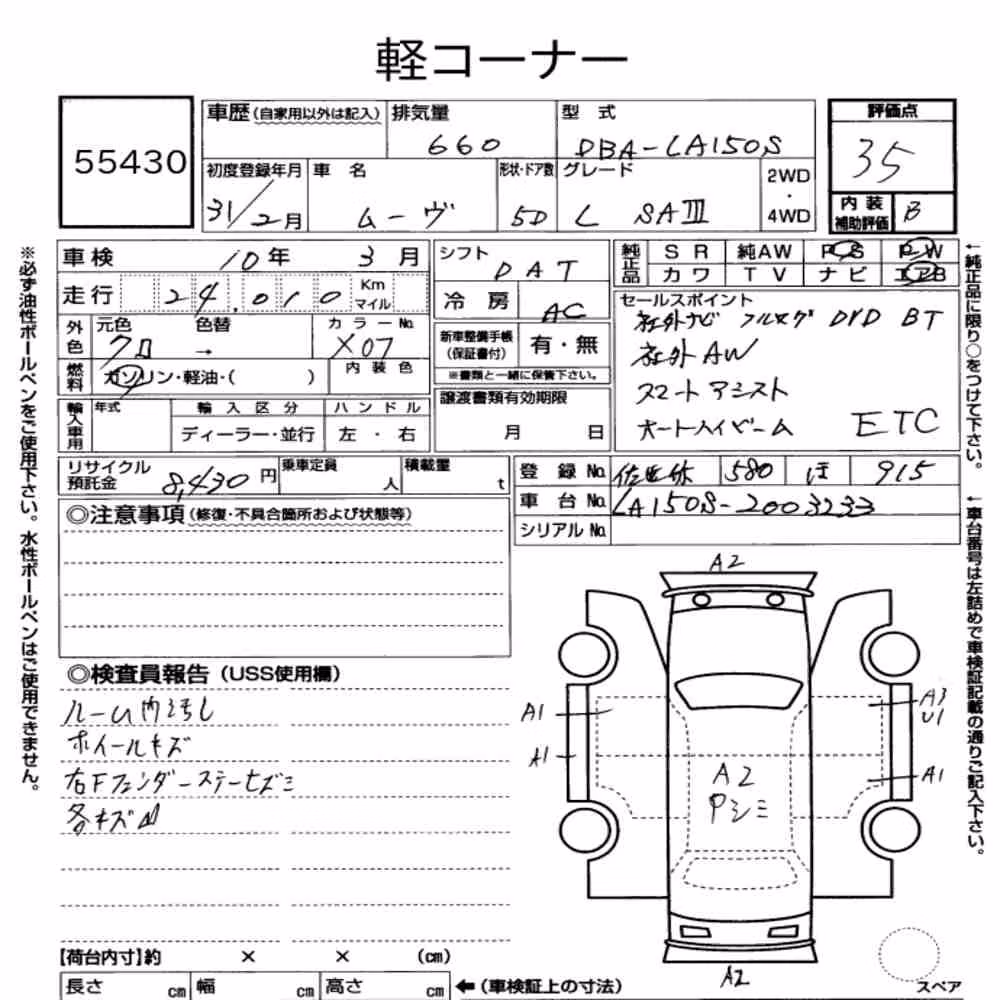 軽コーナー
55430
車歴(自家用以外は記入) 排気量 型式 評価点
660 DBA-LA150S 35
初度登録年月 車名 形状・ドア数 グレード 2WD・4WD
31/2月 ムーヴ 5D L SAⅢ
内装補助評価 B
※必ず油性ボールペンをご使用下さい。水性ボールペンはご使用できません。
車検 10年 3月
走行 24,010 Km マイル
外色 元色 色替 カラーNo.
クロ → X07
燃料 ガソリン・軽油・( ) 内装色
輸入車用 年式 輸入区分 ハンドル
ディーラー・並行 左・右
シフト DAT
冷房 AC
新車整備手帳(保証書付) 有・無
※書類と一緒に保管下さい。
譲渡書類有効期限
月 日
純正品 SR 純AW PS PW
カワ TV ナビ エアB
セールスポイント
社外ナビ フルセグ DVD BT
社外AW
スマートアシスト
オートハイビーム ETC
←純正品に限り○をつけて下さい。
リサイクル預託金 8,430円 乗車定員 人 積載量 t
登録No. 佐世保 580 ほ 915
車台No. LA150S-2003233
シリアルNo.
←車台番号は左詰めで車検証記載の通りご記入下さい。
◎注意事項(修復・不具合箇所および状態等)
◎検査員報告(USS使用欄)
ルーム内ヨゴレ
ホイールキズ
右Fフェンダーステーヒズミ
各キズ凹
A2
A1
A1
A3
U1
A1
A2
Pシミ
A2
スペア
【荷台内寸】約 × × (cm)
長さ cm 幅 cm 高さ cm ←(車検証上の寸法)